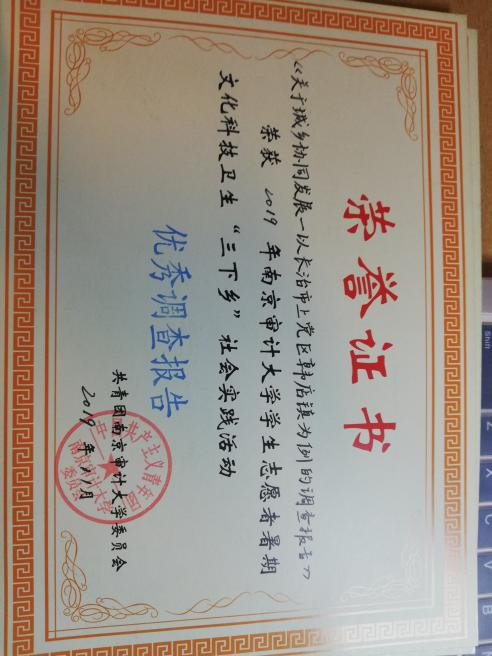 荣誉证书
《关于城乡协同发展—以长治市上党区韩店镇为例的调查报告》
荣获 2019 年南京审计大学学生志愿者暑期
文化科技卫生“三下乡”社会实践活动
优秀调查报告
共青团南京审计大学委员会
2019 年 11 月
中国共产主义青年团
南京审计大学
委员会
Shift